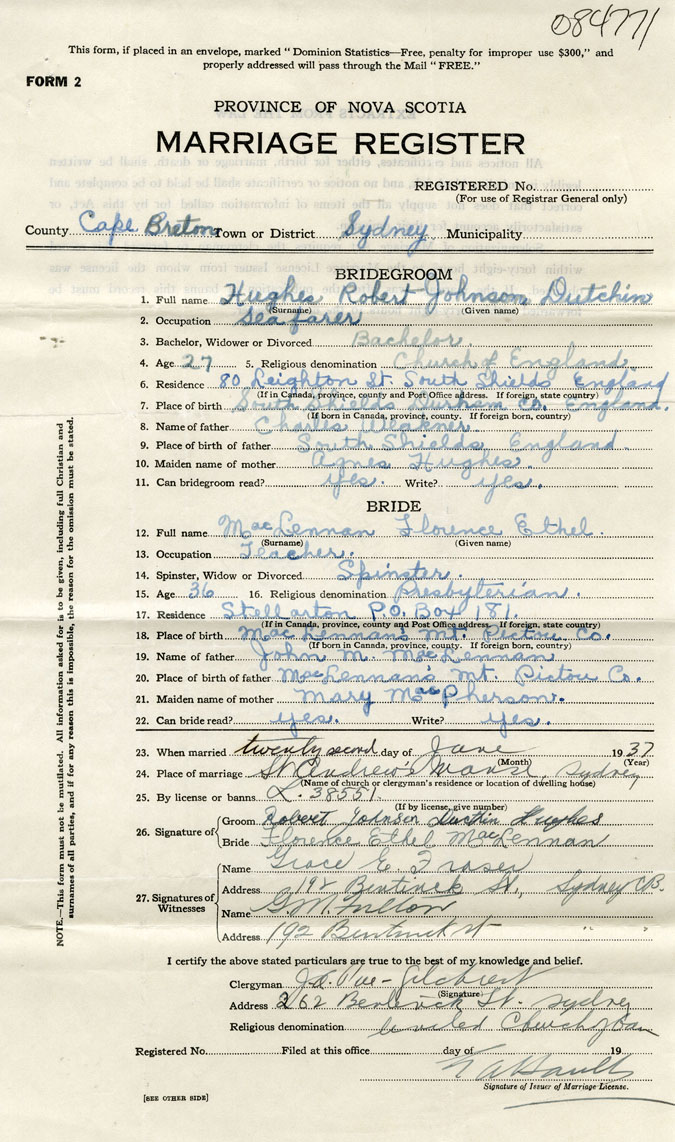 08477
This form, if placed in an envelope, marked "Dominion Statistics—Free, penalty for improper use $300," and
properly addressed will pass through the Mail "FREE."
FORM 2
PROVINCE OF NOVA SCOTIA
MARRIAGE REGISTER
REGISTERED No.
(For use of Registrar General only)
County Cape Breton Town or District Sydney Municipality
BRIDEGROOM
1. Full name Hughes Robert Johnson Dutchin
(Surname) (Given name)
2. Occupation Seafarer
3. Bachelor, Widower or Divorced Bachelor.
4. Age 27 5. Religious denomination Church of England.
6. Residence 80 Leighton St. South Shields England
(If in Canada, province, county and Post Office address. If foreign, state country)
7. Place of birth South Shields Durham Co. England.
(If born in Canada, province, county. If foreign born, country)
8. Name of father Charles
9. Place of birth of father South Shields, England.
10. Maiden name of mother Agnes Hughes.
11. Can bridegroom read? yes. Write? yes.
BRIDE
12. Full name MacLennan Florence Ethel.
(Surname) (Given name)
13. Occupation Teacher.
14. Spinster, Widow or Divorced Spinster.
15. Age 36 16. Religious denomination Presbyterian.
17. Residence Stellarton P.O. Box 181.
(If in Canada, province, county and Post Office address. If foreign, state country)
18. Place of birth MacLennan's Mt. Pictou Co.
(If born in Canada, province, county. If foreign born, country)
19. Name of father John M. MacLennan
20. Place of birth of father MacLennan's Mt. Pictou Co.
21. Maiden name of mother Mary MacPherson.
22. Can bride read? yes. Write? yes.
23. When married twenty second day of June 1937
(Month) (Year)
24. Place of marriage St Andrew's Manse, Sydney
(Name of church or clergyman's residence or location of dwelling house)
25. By license or banns L. 38551
(If by license, give number)
26. Signature of Groom Robert Johnson Hughes
Bride Florence Ethel MacLennan
27. Signatures of Witnesses
Name Grace E Fraser
Address 192 Bentinck St, Sydney C.B.
Name G.M. Fulton
Address 192 Bentinck St " "
I certify the above stated particulars are true to the best of my knowledge and belief.
Clergyman
(Signature)
Address 262 Bentinck St. Sydney
Religious denomination United Church of Can
Registered No. Filed at this office day of 19
Signature of Issuer of Marriage License.
[SEE OTHER SIDE]
NOTE.—This form must not be mutilated. All information asked for is to be given, including full Christian and
surnames of all parties, and if for any reason this is impossible, the reason for the omission must be stated.